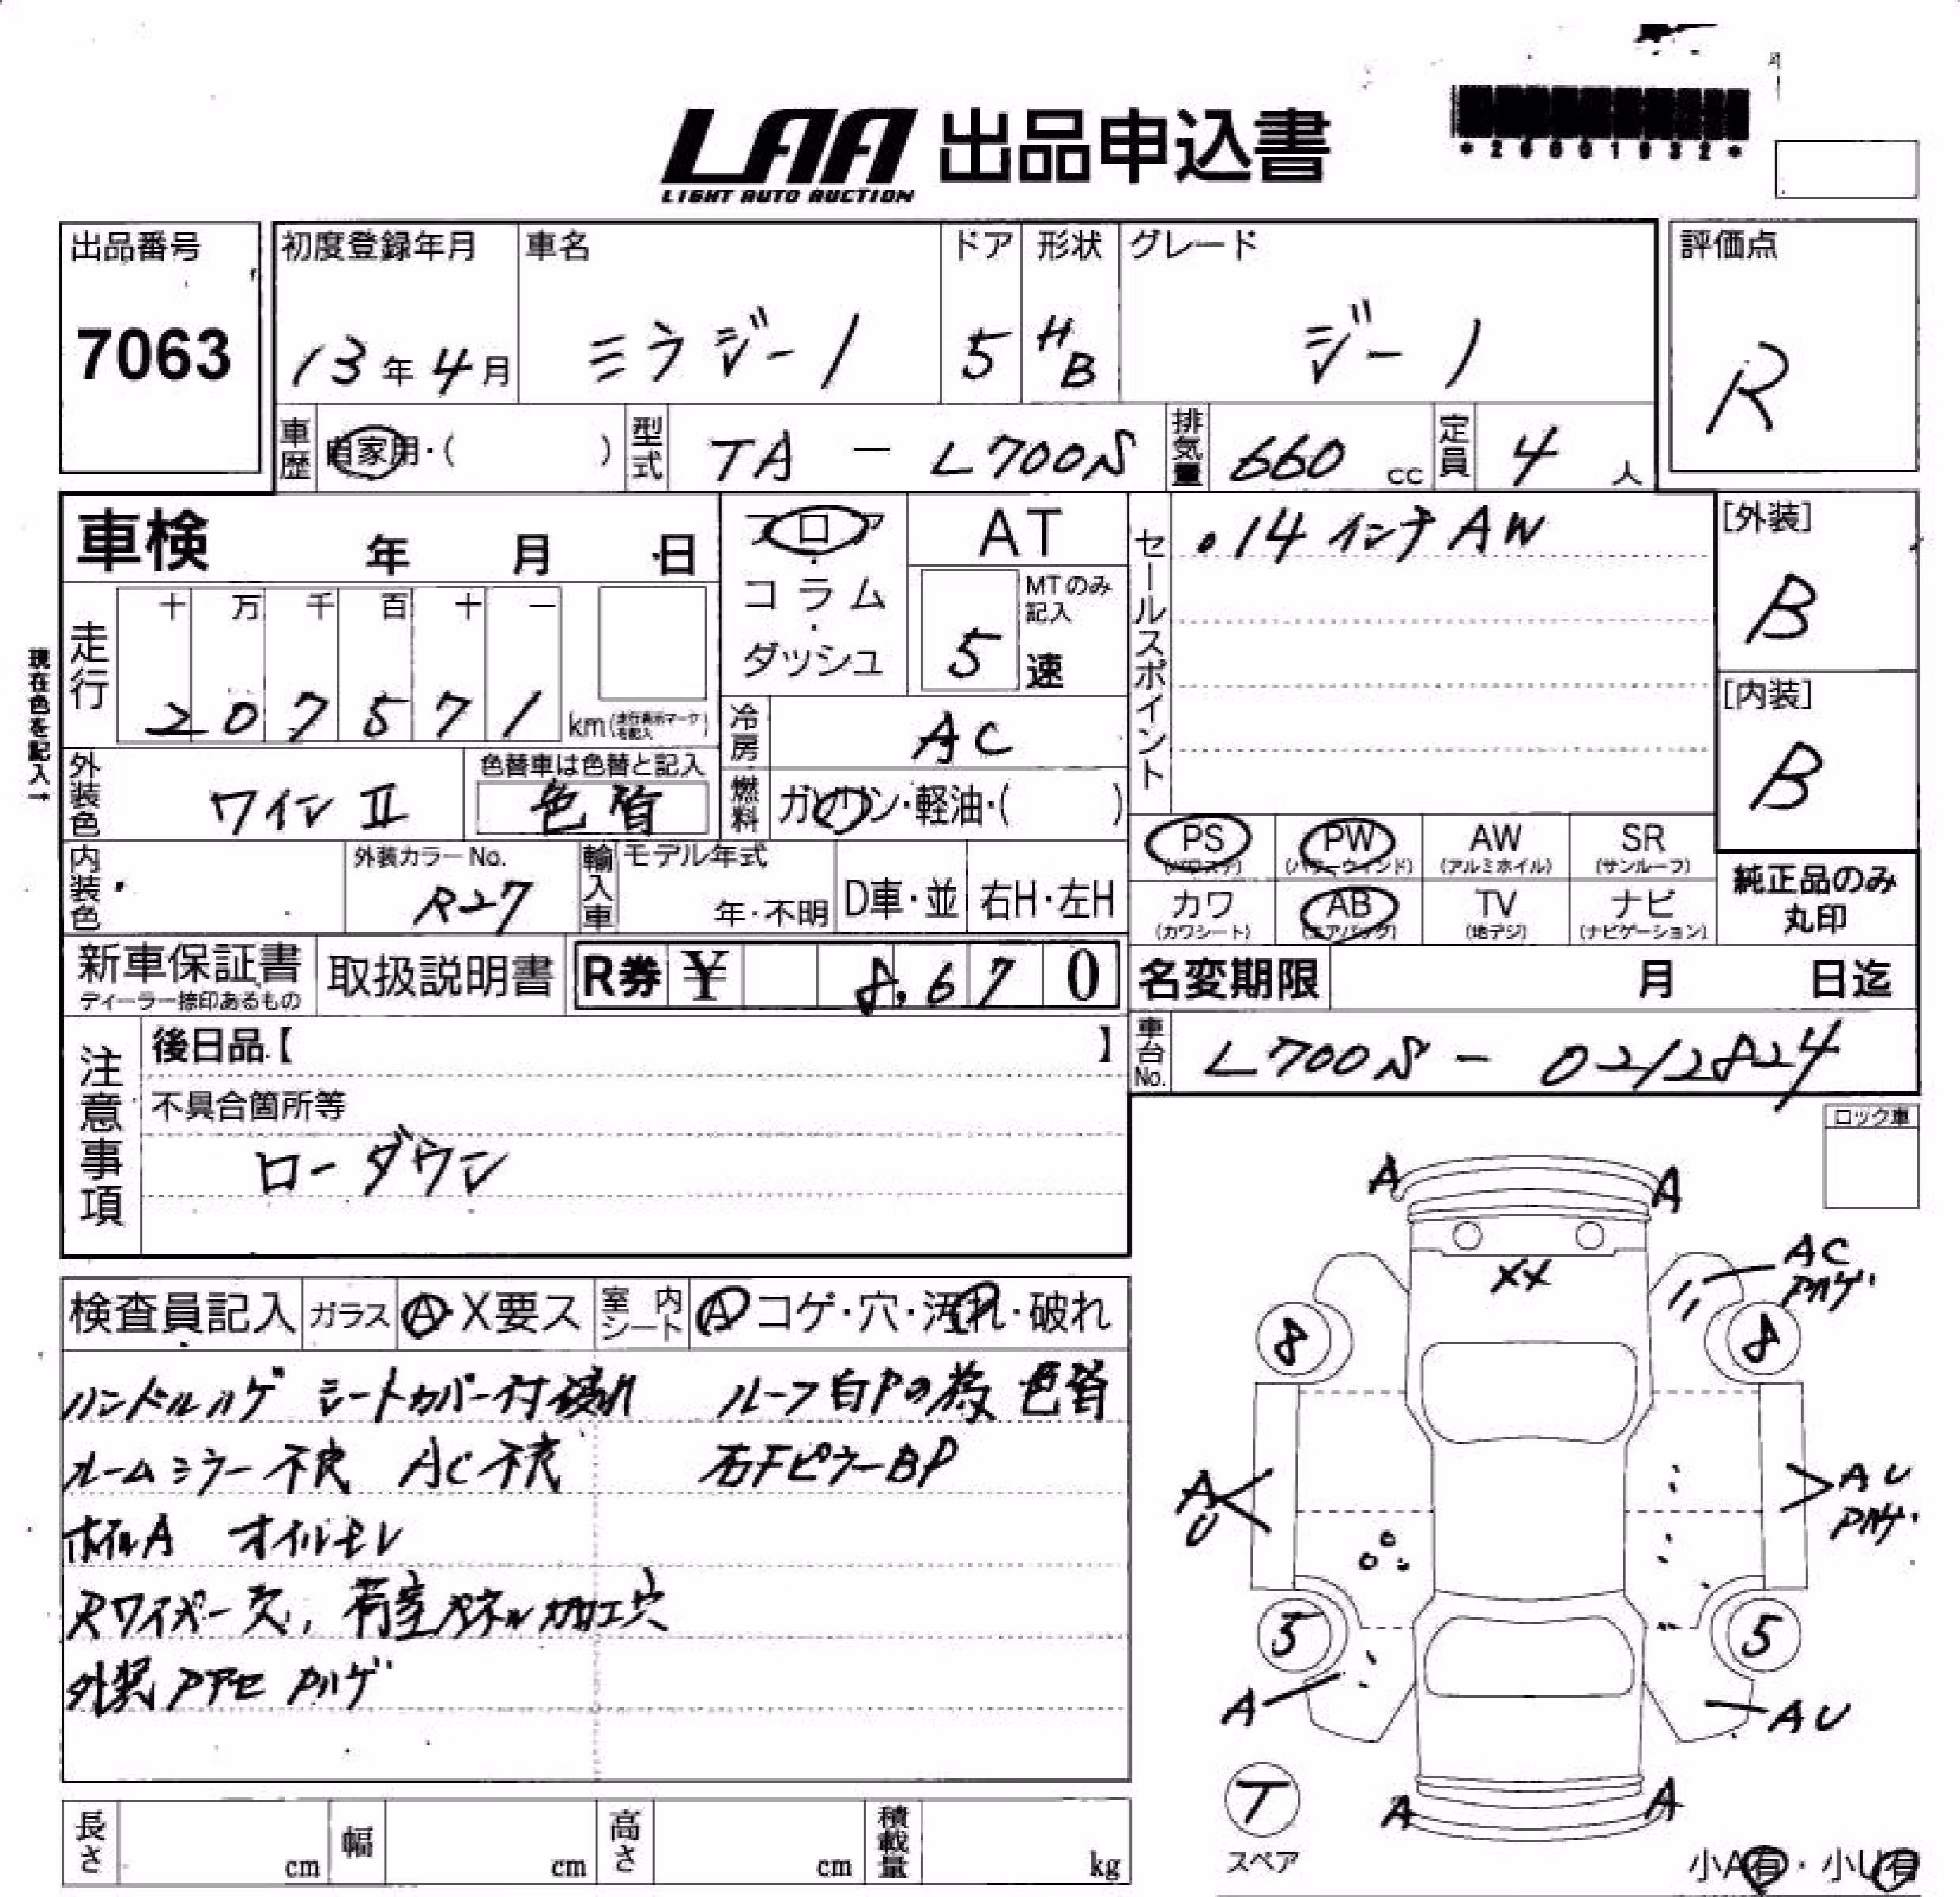 LAA 出品申込書
LIGHT AUTO AUCTION
出品番号
7063
初度登録年月
13年4月
車名
ミラジーノ
ドア
5
形状
HB
グレード
ジーノ
評価点
R
車歴 自家用・( )
型式 TA - L700S
排気量 660 cc
定員 4 人
車検 年 月 日
フロア・コラム・ダッシュ
AT
MTのみ記入
5 速
セールスポイント
・14インチAW
[外装]
B
[内装]
B
現在色を記入→
走行
十 万 千 百 十 一
2 0 7 5 7 1 km (走行表示マークを記入)
冷房 AC
外装色 ワインⅡ
色替車は色替と記入
色替
燃料 ガソリン・軽油・( )
内装色
外装カラーNo.
R27
輸入車 モデル年式
年・不明 D車・並 右H・左H
PS (パワステ)
PW (パワーウィンド)
AW (アルミホイル)
SR (サンルーフ)
カワ (カワシート)
AB (エアバッグ)
TV (地デジ)
ナビ (ナビゲーション)
純正品のみ
丸印
新車保証書
ディーラー捺印あるもの
取扱説明書
R券 ¥ 8,670
名変期限 月 日迄
車台No. L700S - 0212824
注意事項
後日品【 】
不具合箇所等
ローダウン
ロック車
検査員記入 ガラス A・X要ス 室内シート A コゲ・穴・汚れ・破れ
ハンドルハゲ シートカバー付破れ ルーフ白Pの為 色替
ルームミラー不良 AC不良 右FピラーBP
ホイルA オイルモレ
Rワイパー欠, 荷室パネル加工穴
外装Pアセ Pハゲ
A A
XX
AC
Pハゲ
8 8
A
U
AU
Pハゲ
5 5
A
AU
A A
T
スペア
小A有・小U有
長さ cm
幅 cm
高さ cm
積載量 kg